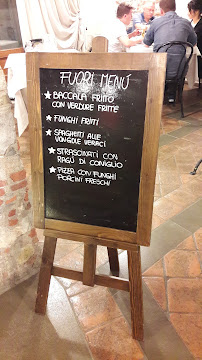 FUORI MENÚ
★ BACCALÀ FRITTO
CON VERDURE FRITTE
★ FUNGHI FRITTI
★ SPAGHETTI ALLE
VONGOLE VERACI
★ STRASCINATI CON
RAGÚ DI CONIGLIO
★ PIZZA CON FUNGHI
PORCINI FRESCHI